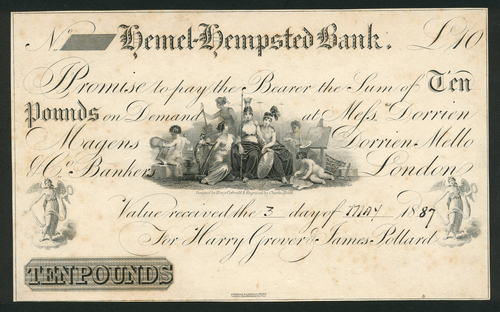 No Hemel-Hempsted Bank. £10
Promise to pay the Bearer the Sum of Ten
Pounds on Demand at Messrs Dorrien
Magens Dorrien Mello
& Co Bankers London
Value received the 3 day of May 1887
For Harry Grover & James Pollard
TEN POUNDS